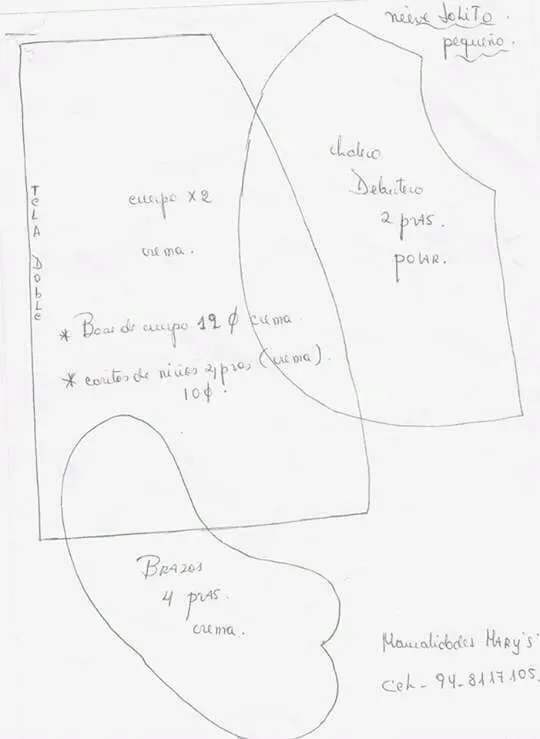 nieve Solito.
pequeño.
chaleco
Delantero
2 pzas.
POLAR.
TELA DOBLE
cuerpo x2
crema.
* Base de cuerpo 12 ϕ crema
* caritas de niños 2 pzas (crema).
10ϕ.
BRAZOS
4 pzas.
crema.
Manualidades MARY'S
Cel - 94-8117105.